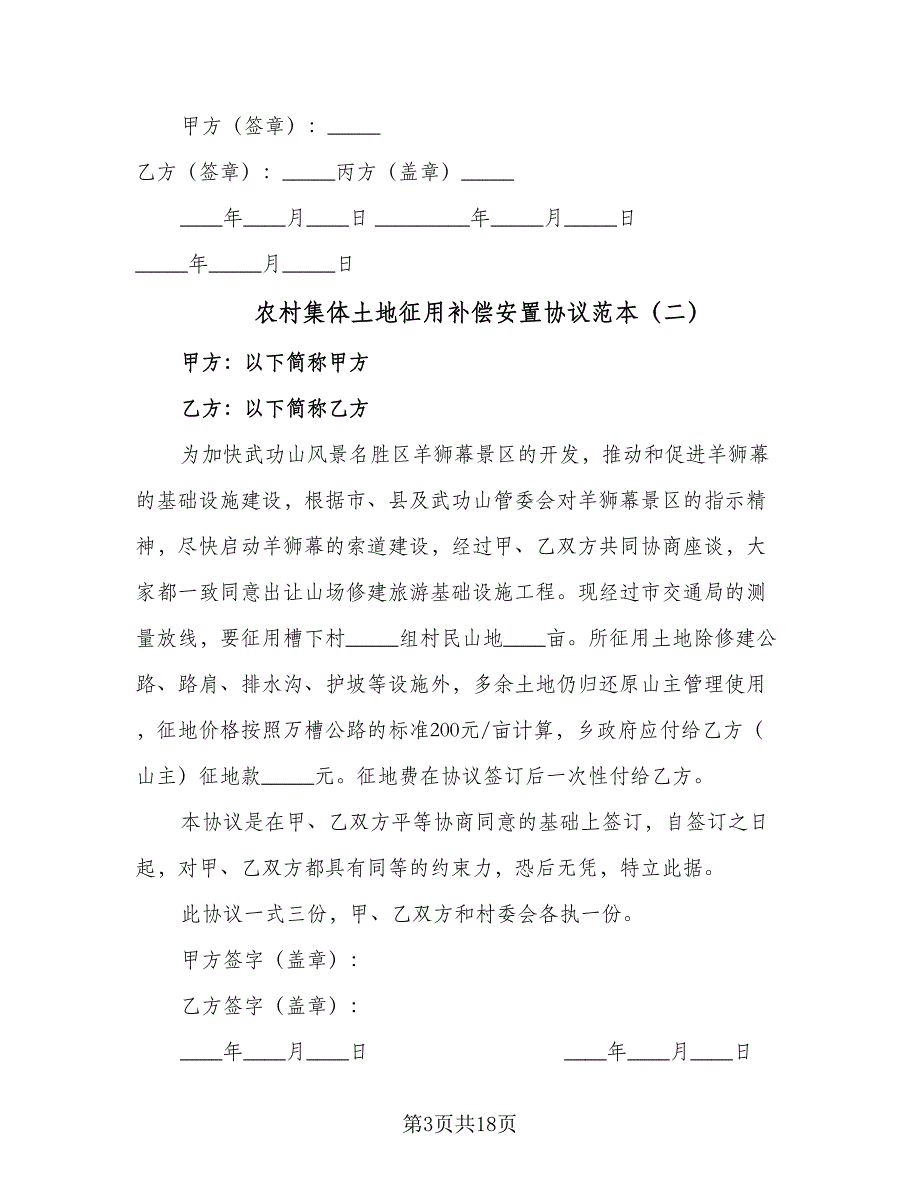 甲方（签章）：_____
乙方（签章）：_____丙方（盖章）_____
____年____月____日 _________年_____月_____日
_____年_____月_____日
农村集体土地征用补偿安置协议范本（二）
甲方：以下简称甲方
乙方：以下简称乙方
为加快武功山风景名胜区羊狮幕景区的开发，推动和促进羊狮幕
的基础设施建设，根据市、县及武功山管委会对羊狮幕景区的指示精
神，尽快启动羊狮幕的索道建设，经过甲、乙双方共同协商座谈，大
家都一致同意出让山场修建旅游基础设施工程。现经过市交通局的测
量放线，要征用槽下村_____组村民山地____亩。所征用土地除修建公
路、路肩、排水沟、护坡等设施外，多余土地仍归还原山主管理使用
，征地价格按照万槽公路的标准200元/亩计算，乡政府应付给乙方（
山主）征地款_____元。征地费在协议签订后一次性付给乙方。
本协议是在甲、乙双方平等协商同意的基础上签订，自签订之日
起，对甲、乙双方都具有同等的约束力，恐后无凭，特立此据。
此协议一式三份，甲、乙双方和村委会各执一份。
甲方签字（盖章）：
乙方签字（盖章）：
____年____月____日 ____年____月____日
第3页共18页